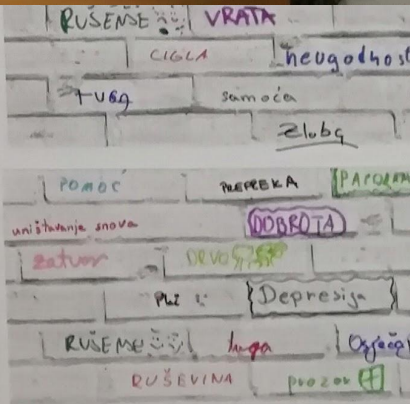 RUŠENJE VRATA
CIGLA neugodnos
TUGA samoća
Zloba
POMOĆ PREPREKA
uništavanje snova DOBROTA
zatvor DRVO
Depresija
RUŠENJE tuga
RUŠEVINA prozor